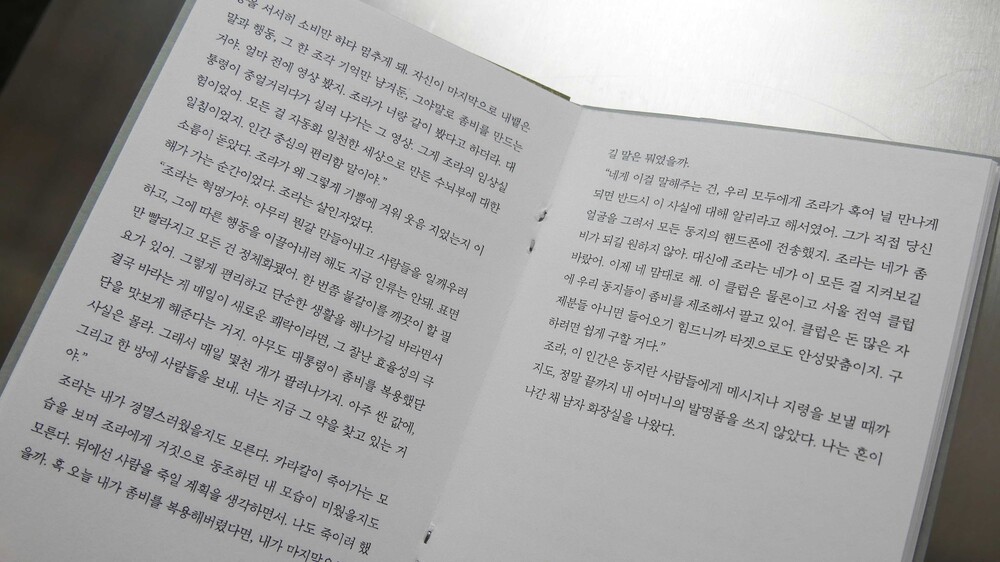 을 서서히 소비만 하다 멈추게 돼. 자신이 마지막으로 내뱉은
말과 행동, 그 한 조각 기억만 남겨둔, 그야말로 좀비를 만드는
거야. 얼마 전에 영상 봤지. 조라가 너랑 같이 봤다고 하더라. 대
통령이 중얼거리다가 실려 나가는 그 영상. 그게 조라의 임상실
험이었어. 모든 걸 자동화 일천한 세상으로 만든 수뇌부에 대한
일침이었지. 인간 중심의 편리함 말이야.”
소름이 돋았다. 조라가 왜 그렇게 기쁨에 겨워 웃음 지었는지 이
해가 가는 순간이었다. 조라는 살인자였다.
“조라는 혁명가야. 아무리 뭔갈 만들어내고 사람들을 일깨우려
하고, 그에 따른 행동을 이끌어내려 해도 지금 인류는 안돼. 표면
만 빨라지고 모든 건 정체화됐어. 한 번쯤 물갈이를 깨끗이 할 필
요가 있어. 그렇게 편리하고 단순한 생활을 해나가길 바라면서
결국 바라는 게 매일이 새로운 쾌락이라면, 그 잘난 효율성의 극
단을 맛보게 해준다는 거지. 아무도 대통령이 좀비를 복용했단
사실은 몰라. 그래서 매일 몇천 개가 팔려나가지. 아주 싼 값에,
그리고 한 방에 사람들을 보내. 너는 지금 그 약을 찾고 있는 거
야.”
조라는 내가 경멸스러웠을지도 모른다. 카라칼이 죽어가는 모
습을 보며 조라에게 거짓으로 동조하던 내 모습이 미웠을지도
모른다. 뒤에선 사람을 죽일 계획을 생각하면서. 나도 죽이려 했
을까. 혹 오늘 내가 좀비를 복용해버렸다면, 내가
길 말은 뭐였을까.
“네게 이걸 말해주는 건, 우리 모두에게 조라가 혹여 널 만나게
되면 반드시 이 사실에 대해 알리라고 해서였어. 그가 직접 당신
얼굴을 그려서 모든 동지의 핸드폰에 전송했지. 조라는 네가 좀
비가 되길 원하지 않아. 대신에 조라는 네가 이 모든 걸 지켜보길
바랐어. 이제 네 맘대로 해. 이 클럽은 물론이고 서울 전역 클럽
에 우리 동지들이 좀비를 제조해서 팔고 있어. 클럽은 돈 많은 자
제분들 아니면 들어오기 힘드니까 타겟으로도 안성맞춤이지. 구
하려면 쉽게 구할 거다.”
조라, 이 인간은 동지란 사람들에게 메시지나 지령을 보낼 때까
지도, 정말 끝까지 내 어머니의 발명품을 쓰지 않았다. 나는 혼이
나간 채 남자 화장실을 나왔다.